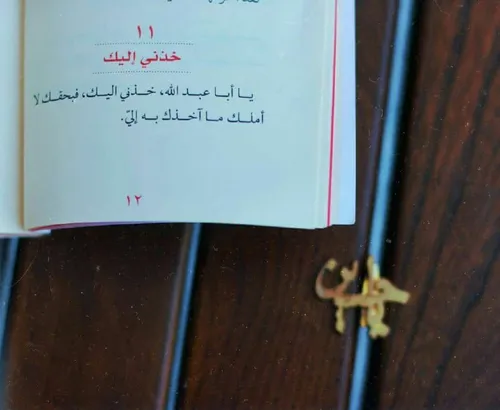 ١١
خذني إليك
يا أبا عبد الله، خذني اليك، فبحقك لا
أملك ما آخذك به إليّ.
١٢
يا حسين